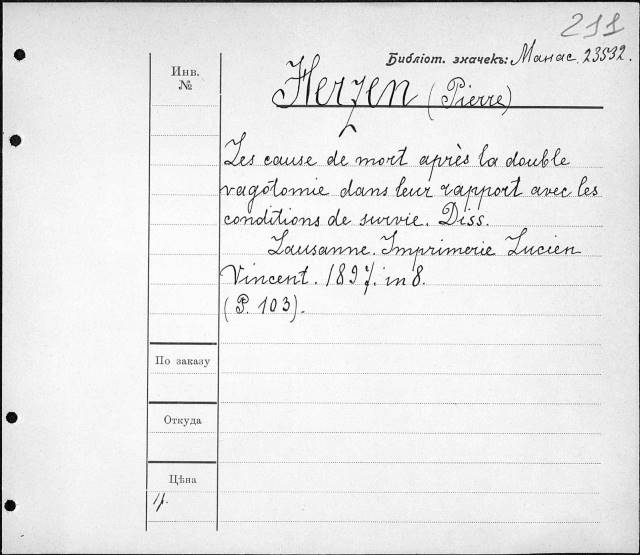 211
Библіот. значекъ: Манас. 23532.
Инв.
№
Herzen (Pierre)
Les cause de mort après la double
vagotomie dans leur rapport avec les
conditions de survie. Diss.
Lausanne. Imprimerie Lucien
Vincent. 1897. in 8.
(P. 103).
По заказу
Откуда
Цѣна